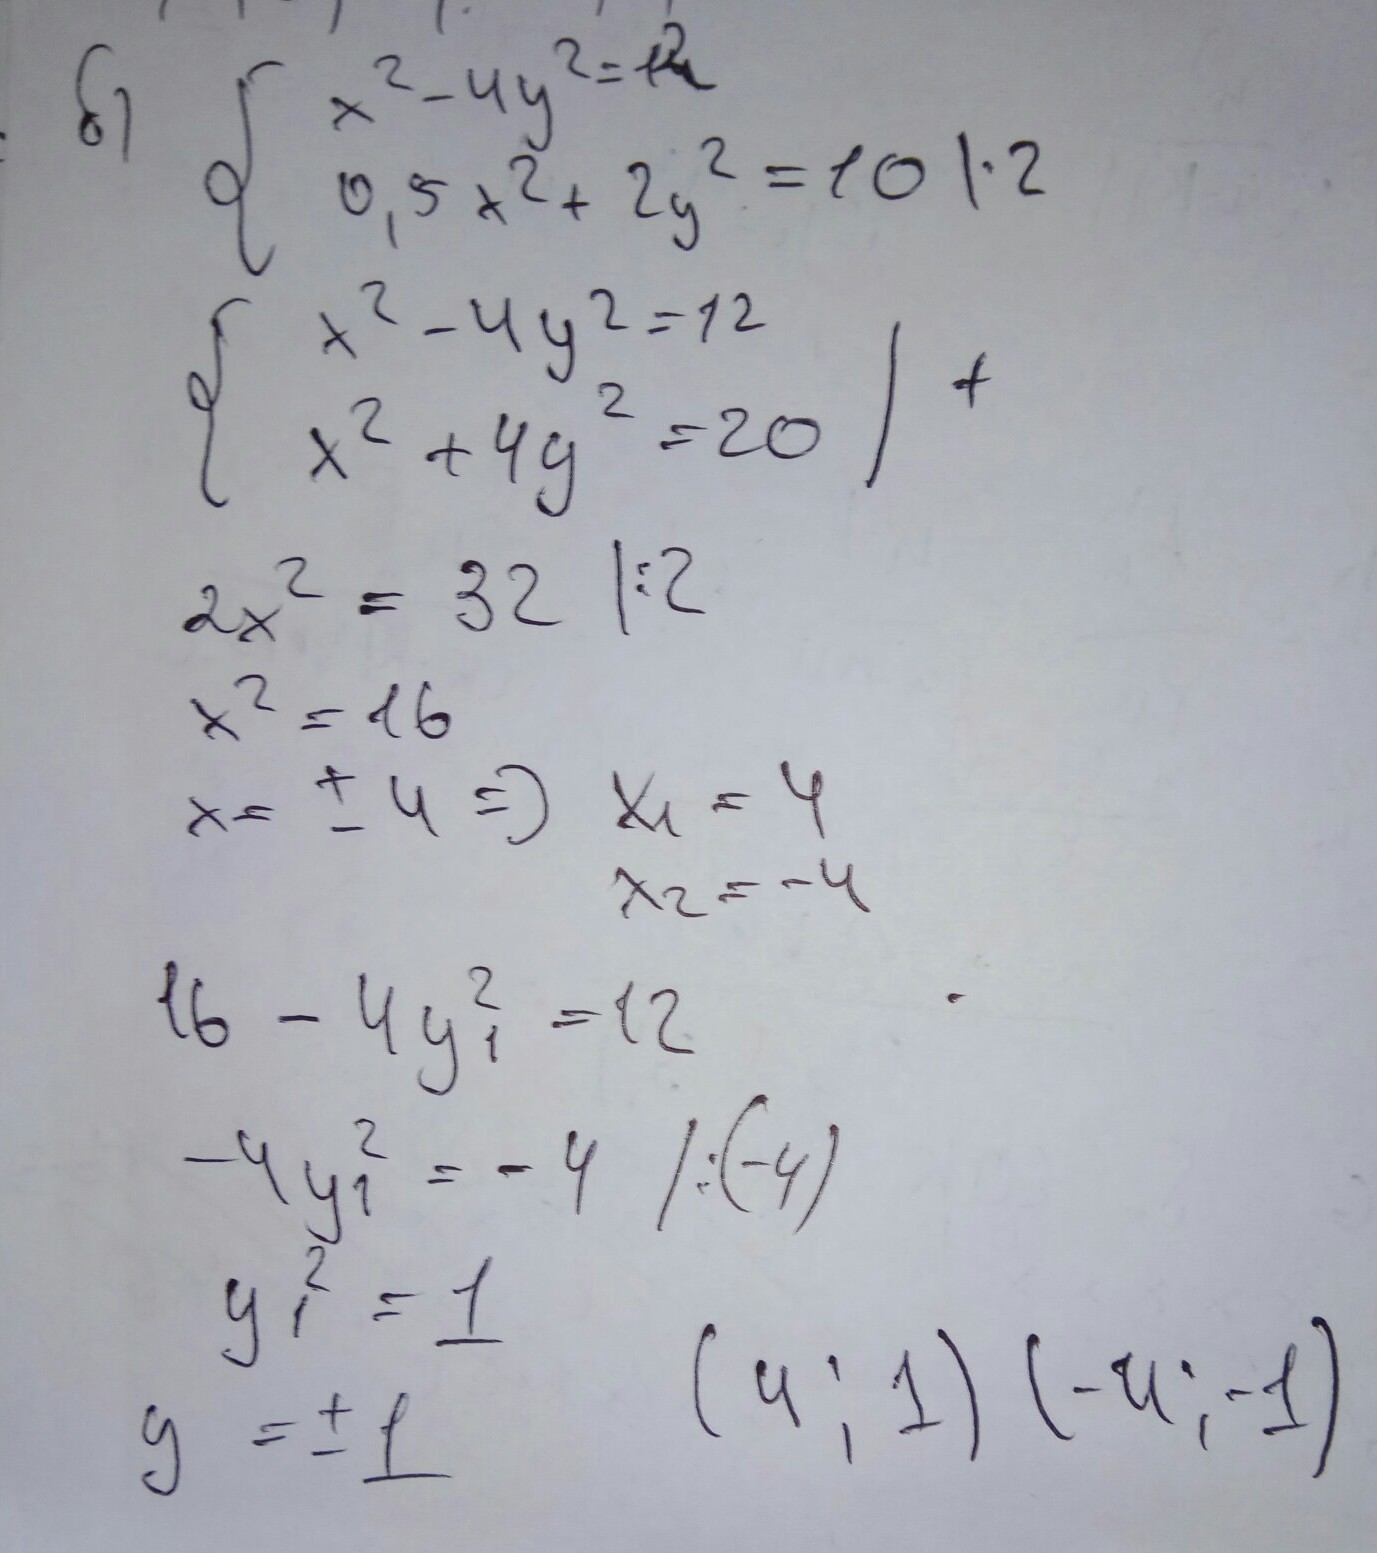 б) { x² - 4y² = 12
0,5x² + 2y² = 10 |·2
{ x² - 4y² = 12
x² + 4y² = 20 | +
2x² = 32 |:2
x² = 16
x = ± 4 => x₁ = 4
x₂ = -4
16 - 4y₁² = 12
-4y₁² = -4 /:(-4)
y₁² = 1
y = ±1 (4; 1) (-4; -1)